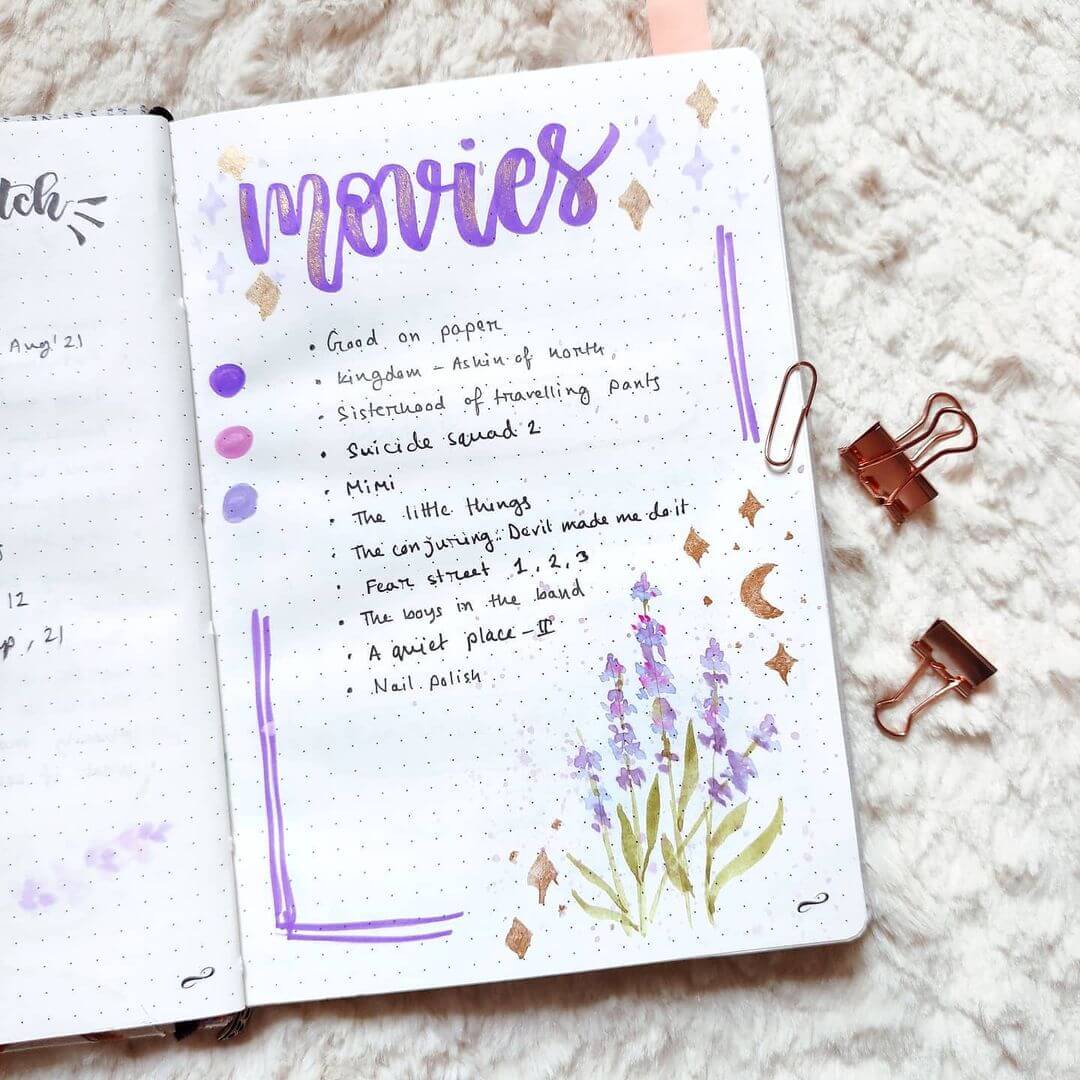 tch
Aug'21
12
, 21
movies
• Good on paper
• Kingdom - Ashin of north
• Sisterhood of travelling pants
• Suicide squad 2
• Mimi
• The little things
• The conjuring: Devil made me do it
• Fear street 1, 2, 3
• The boys in the band
• A quiet place - II
• Nail polish